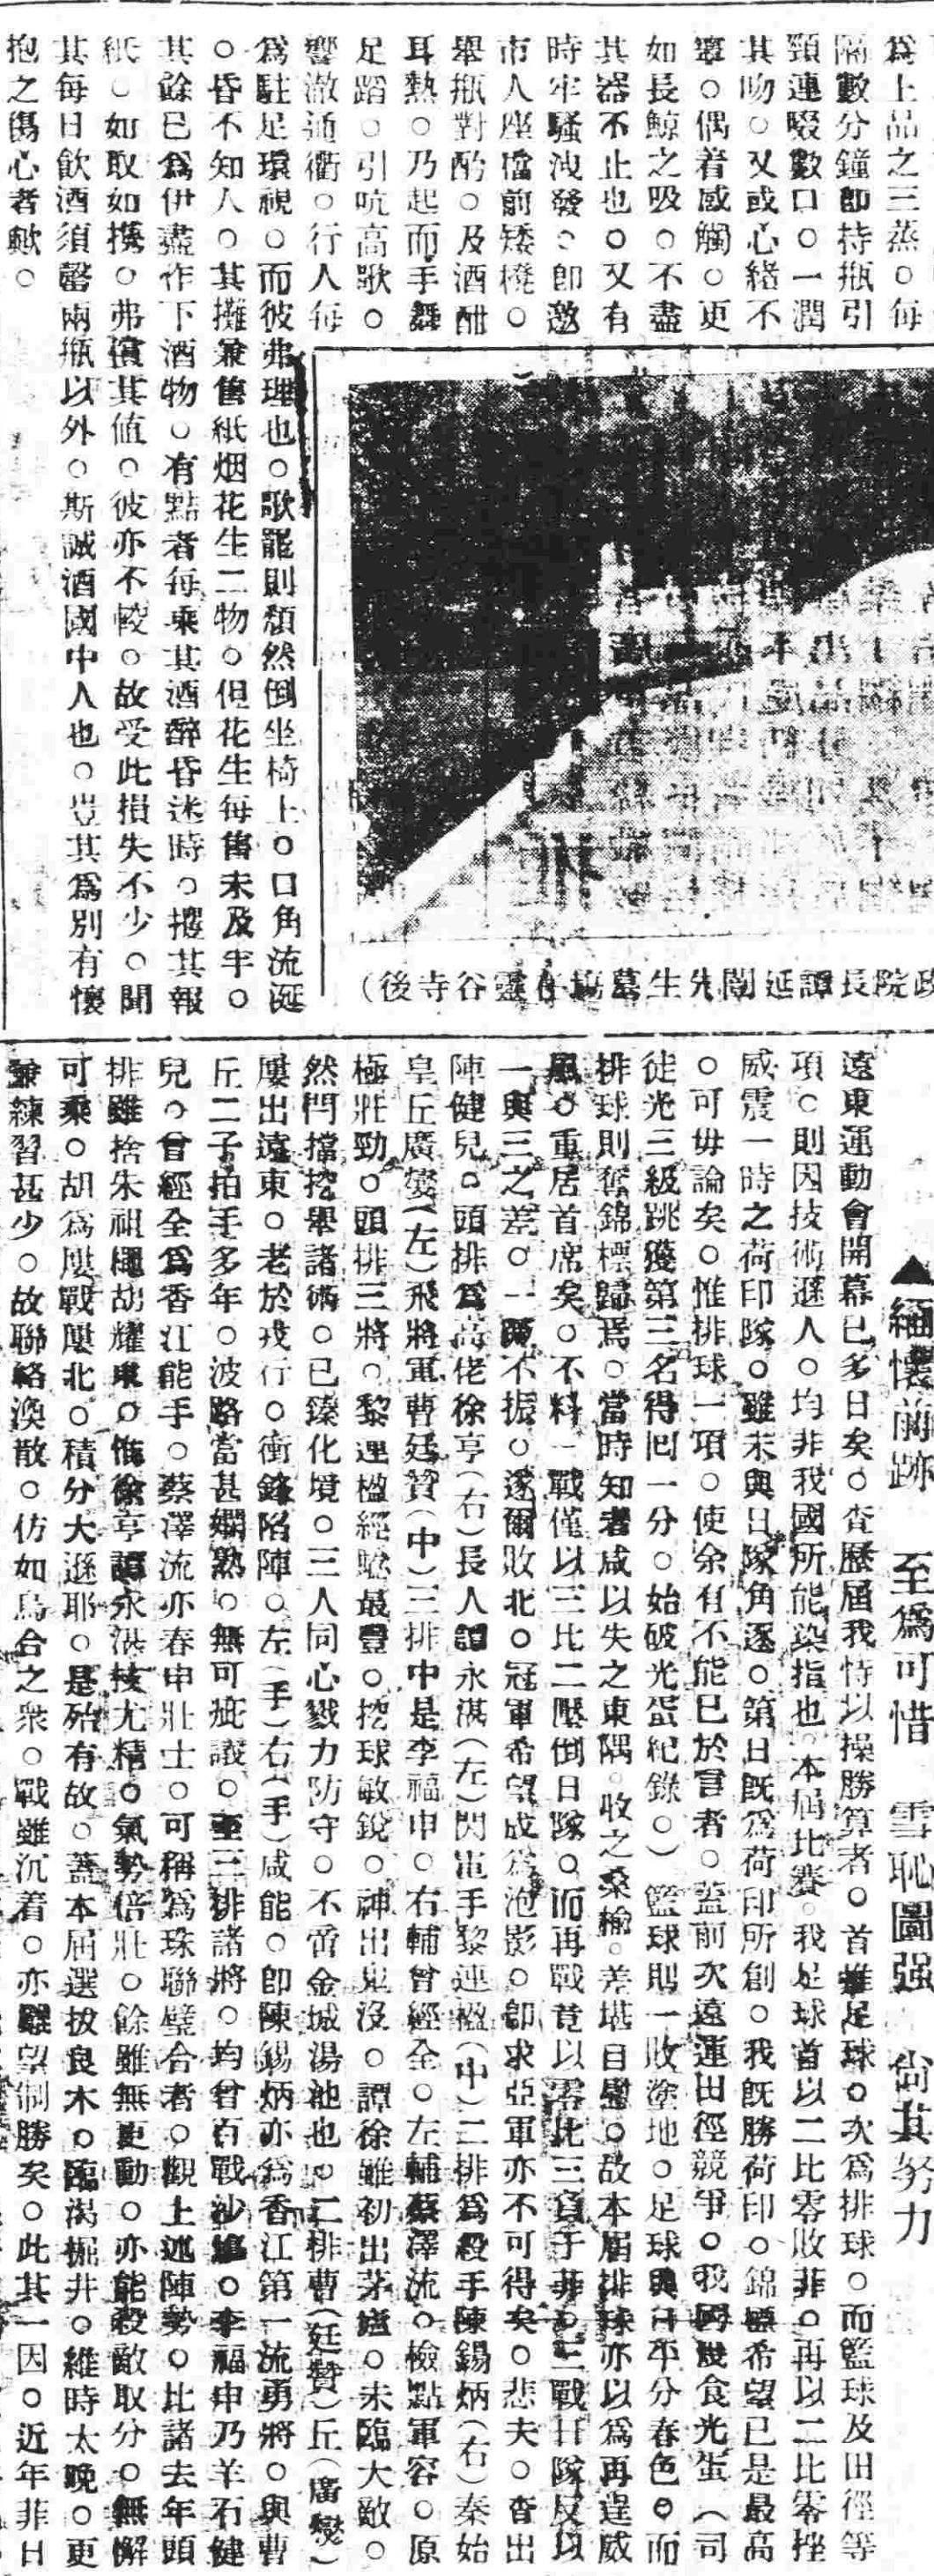 爲上品之三蒸。每
隔數分鐘卽持瓶引
頸連啜數口。一潤
其吻。又或心緒不
寧。偶着感觸。更
如長鯨之吸。不盡
其器不止也。又有
時牢騷洩發。卽邀
市人座檔前矮櫈。
舉瓶對酌。及酒酣
耳熱。乃起而手舞
足蹈。引吭高歌。
響澈通衢。行人每
爲駐足環視。而彼弗理也。歌罷則頹然倒坐椅上。口角流涎
。昏不知人。其攤兼售紙烟花生二物。但花生每售未及半。
其餘已爲伊盡作下酒物。有點者每乘其酒醉昏迷時。攫其報
紙。如取如携。弗償其值。彼亦不較。故受此損失不少。聞
其每日飲酒須罄兩瓶以外。斯誠酒國中人也。豈其爲別有懷
抱之傷心者歟。
政院長譚延闓先生墓塲在靈谷寺後）
▲緬懷前跡　至爲可惜　雪恥圖强　尙其努力
遠東運動會開幕已多日矣。查歷屆我恃以操勝算者。首推足球。次爲排球。而籃球及田徑等
項。則因技術遜人。均非我國所能染指也。本屆比賽。我足球首以二比零敗菲。再以二比零挫
威震一時之荷印隊。雖未與日隊角逐。第日旣爲荷印所創。我旣勝荷印。錦標希望已是最高
。可毋論矣。惟排球一項。使余有不能已於言者。蓋前次遠運田徑競爭。我國幾食光蛋（司
徒光三級跳獲第三名得回一分。始破光蛋紀錄。）籃球則一敗塗地。足球與日平分春色。而
排球則奪錦標歸焉。當時知者咸以失之東隅。收之桑榆。差堪自慰。故本屆排球亦以爲再逞威
風。重居首席矣。不料一戰僅以三比二壓倒日隊。而再戰竟以零比三負于菲。三戰日隊反以
一與三之差。一蹶不振。遂爾敗北。冠軍希望成爲泡影。卽求亞軍亦不可得矣。悲夫。查出
陣健兒。頭排爲高佬徐亨（右）長人譚永湛（左）閃電手黎連楹（中）二排爲殺手陳錫炳（右）秦始
皇丘廣燮（左）飛將軍曹廷贊（中）三排中是李福申。右輔曾經全。左輔蔡澤流。檢點軍容。原
極壯勁。頭排三將。黎連楹經驗最豐。挖球敏銳。神出鬼沒。譚徐雖初出茅廬。未臨大敵。
然閂擋挖舉諸術。已臻化境。三人同心戮力防守。不啻金城湯池也。二排曹（廷贊）丘（廣燮）
屢出遠東。老於戎行。衝鋒陷陣。左（手）右（手）咸能。卽陳錫炳亦爲香江第一流勇將。與曹
丘二子拍手多年。波路當甚嫻熟。無可疵議。至三排諸將。均曾百戰沙塲。李福申乃羊石健
兒。曾經全爲香江能手。蔡澤流亦春申壯士。可稱爲珠聯璧合者。觀上述陣勢。比諸去年頭
排雖捨朱祖繩胡耀東。惟徐亨譚永湛技尤精。氣勢倍壯。餘雖無更動。亦能殺敵取分。無懈
可乘。胡爲屢戰屢北。積分大遜耶。是殆有故。蓋本屆選拔良木。臨渴掘井。維時太晚。更
兼練習甚少。故聯絡渙散。仿如烏合之衆。戰雖沉着。亦難望制勝矣。此其一因。近年非日